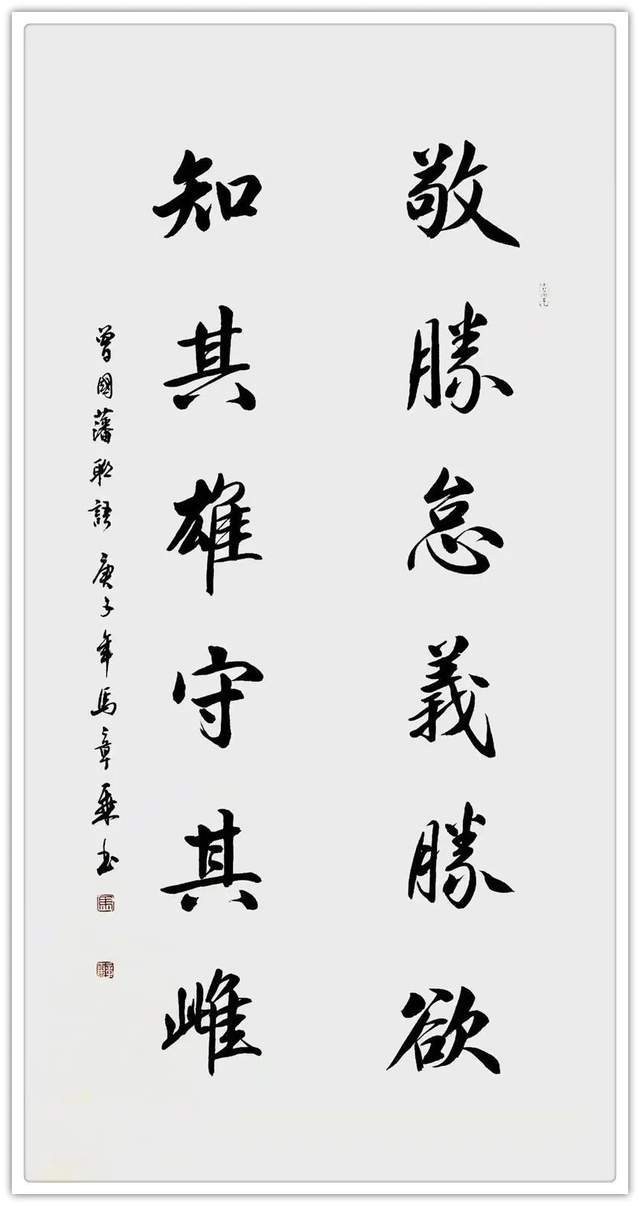 敬勝怠義勝欲
知其雄守其雌
曾國藩聯語 庚子年馬章乘書